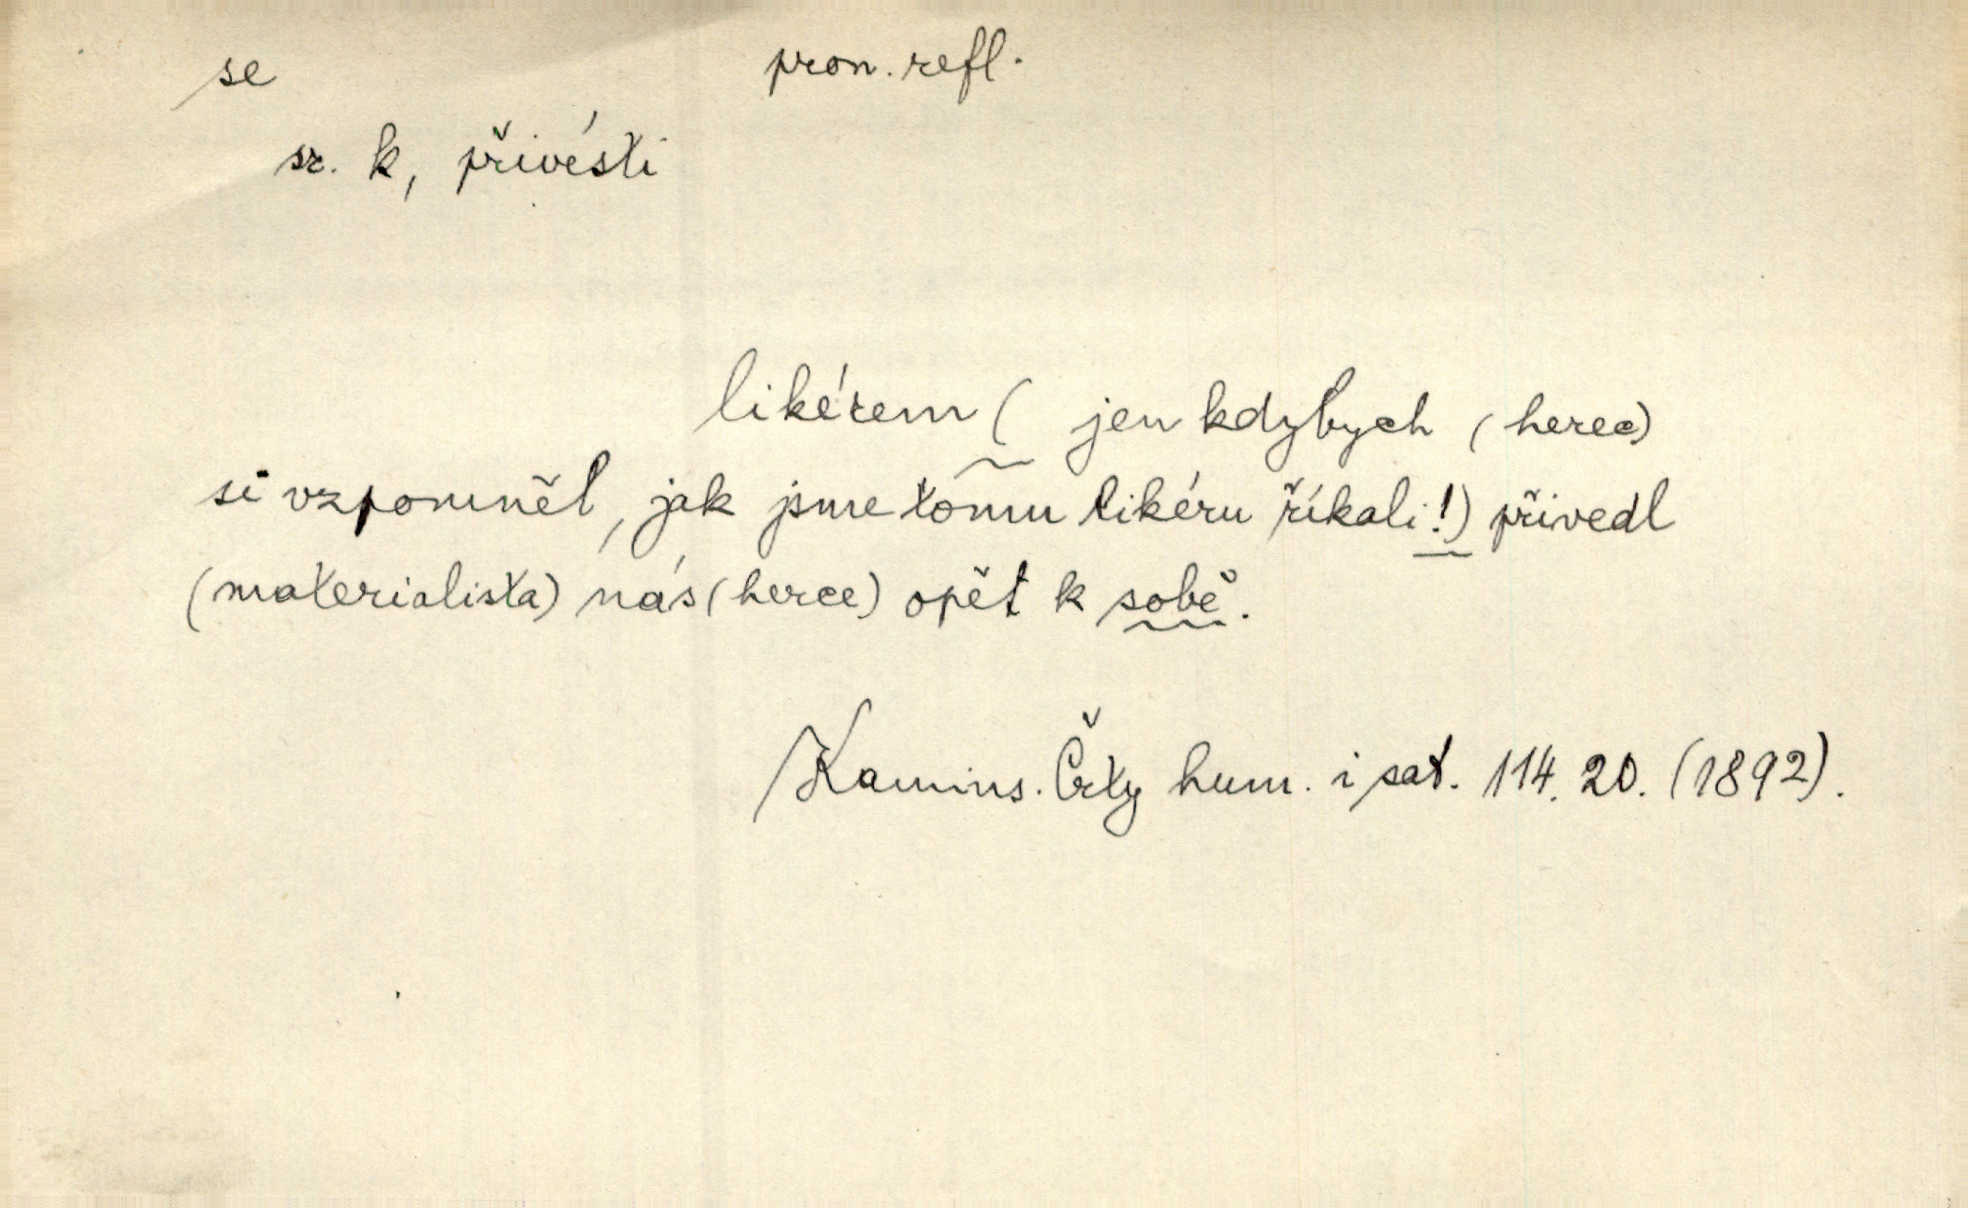 se pron. refl.
sr. k, přivésti
likérem ( jen kdybych (herec)
si vzpomněl, jak jsme tomu likéru říkali!) přivedl
(materialista) nás (herce) opět k sobě.
Kamins. Črty hum. i sat. 114. 20. (1892).